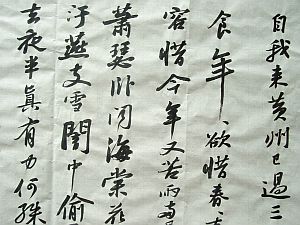 自我来黄州已過三
食年、欲惜春、去
容惜今年又苦雨兩月
蕭瑟卧闻海棠花
汙燕支雪闇中偷
去夜半真有力何殊